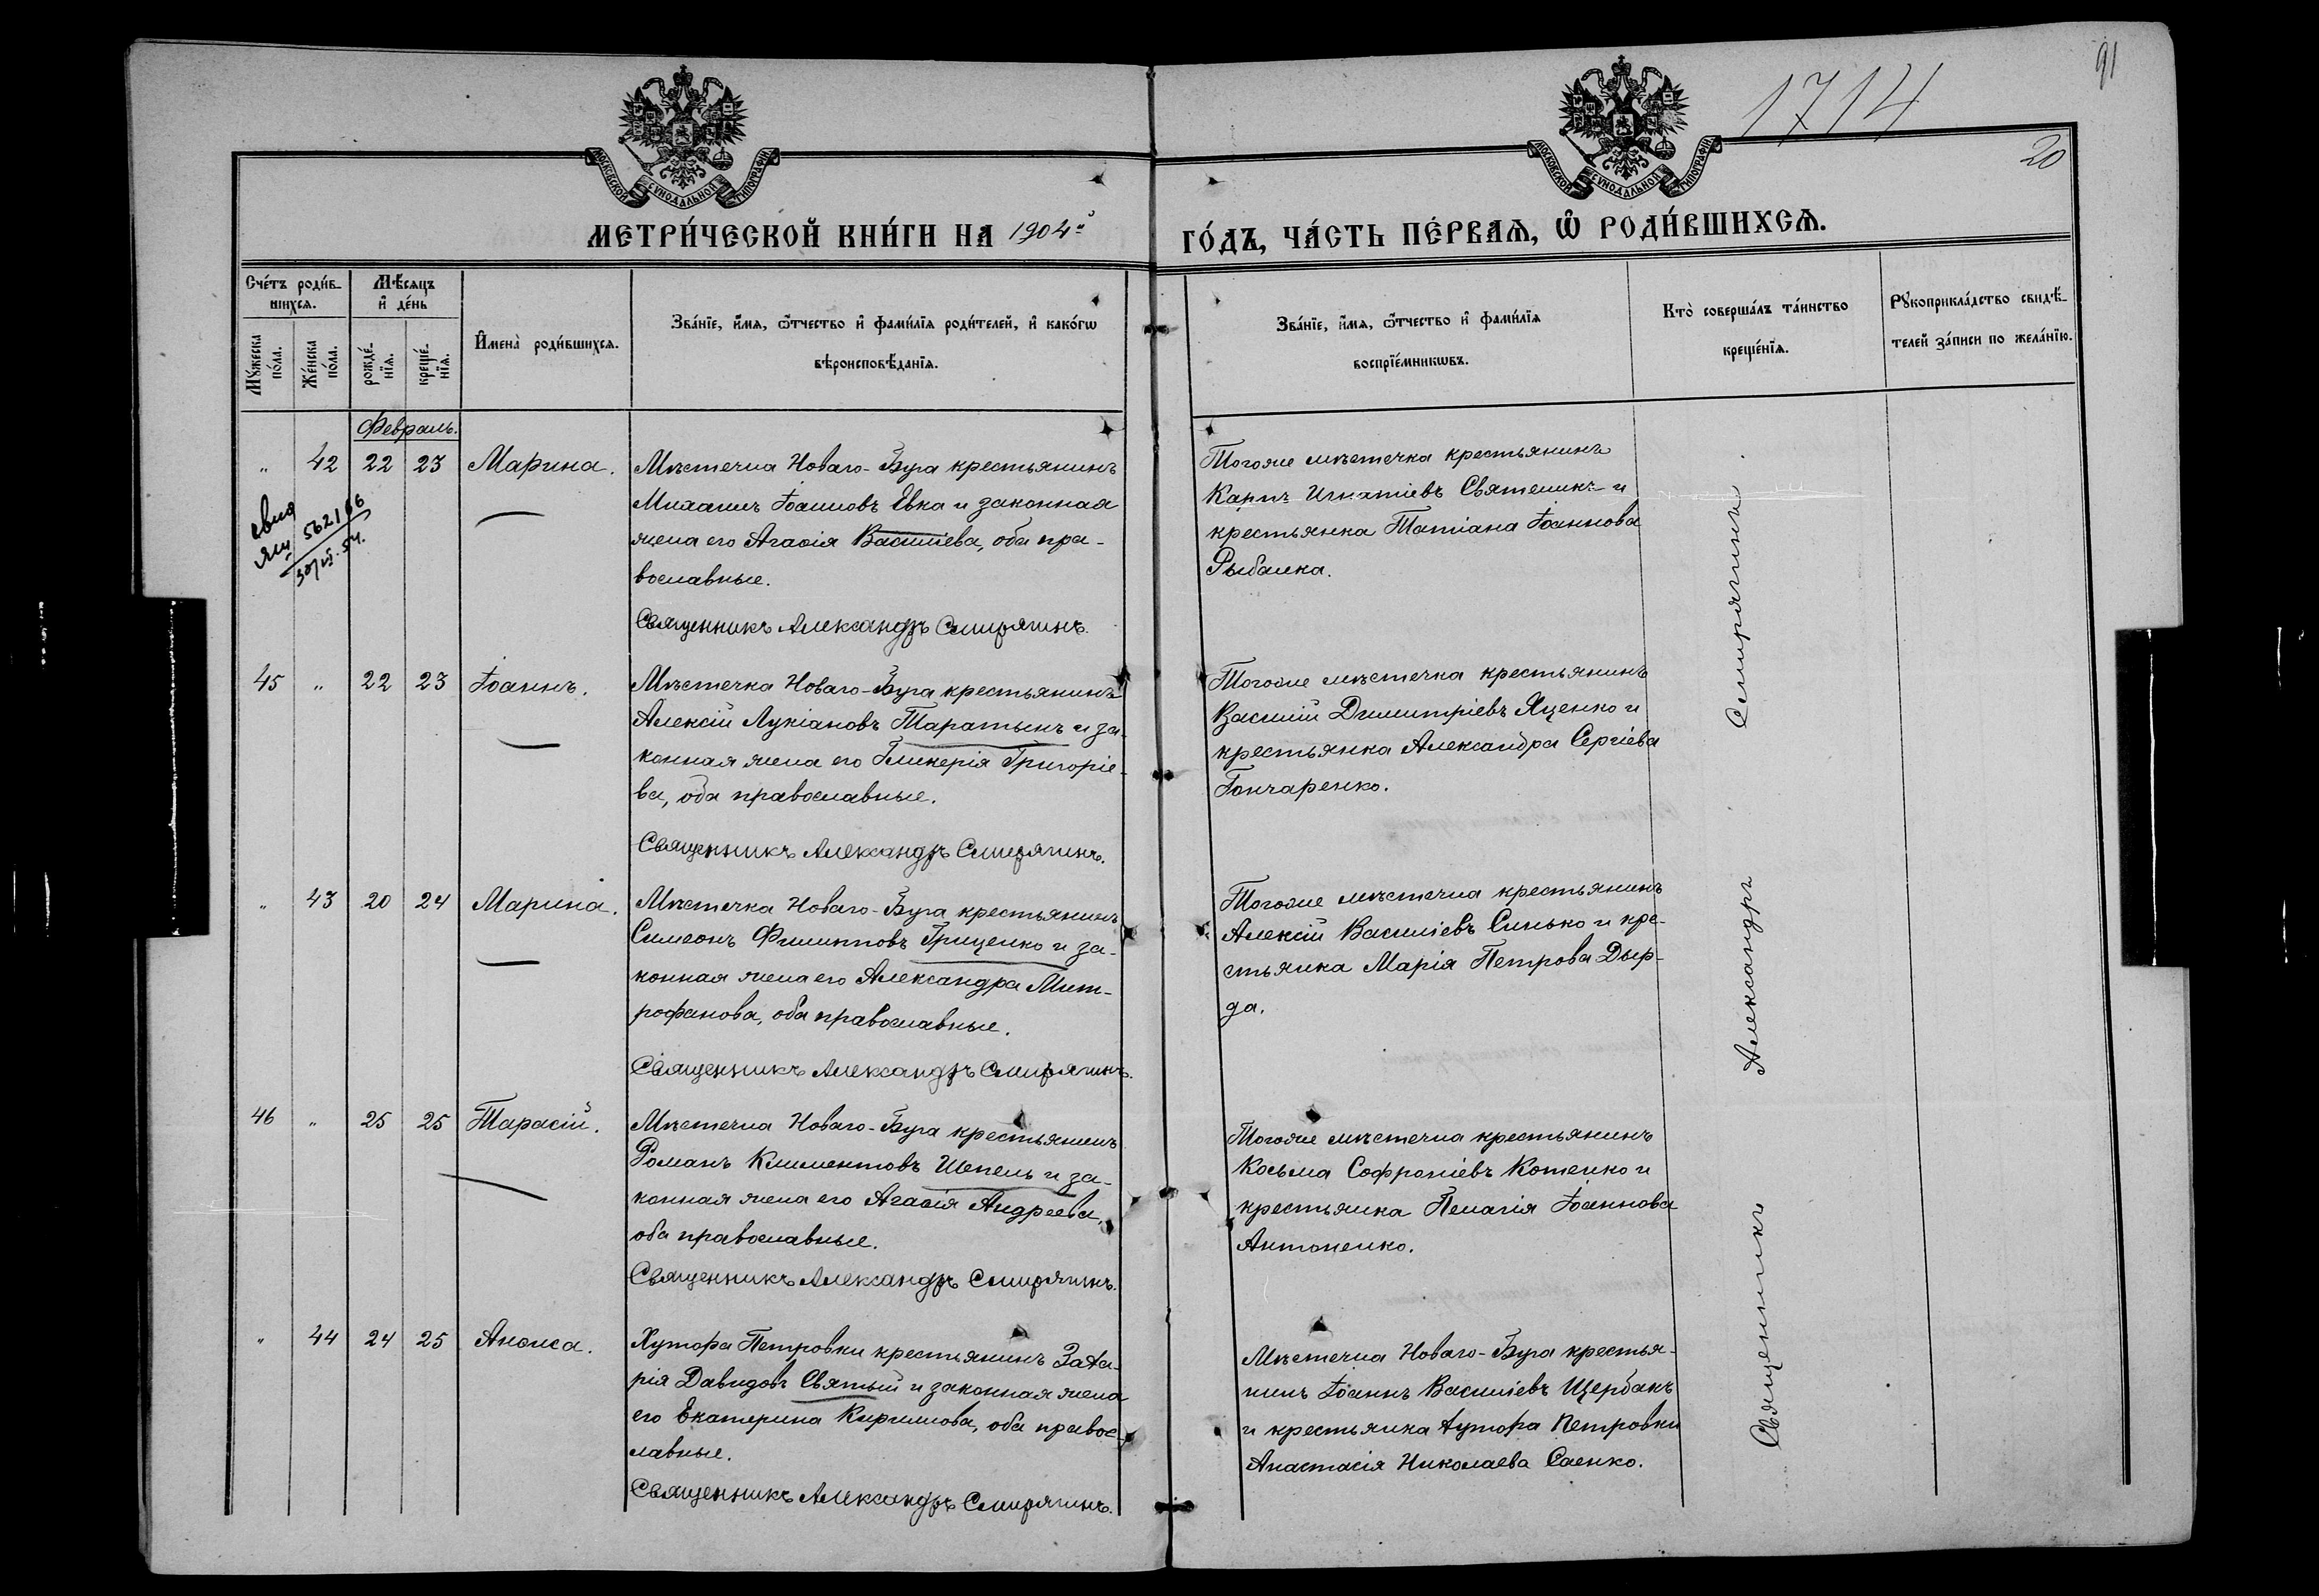 91
1714
20
МОСКОВСКОЙ СѴНОДАЛЬНОЙ ТИПОГРАФІИ
МОСКОВСКОЙ СѴНОДАЛЬНОЙ ТИПОГРАФІИ
МЕТРИ́ЧЕСКОЙ КНИ́ГИ НА 1904й
ГО́ДЪ, ЧА́СТЬ ПЕ́РВАѦ, Ѿ РОДИ́ВШИХСѦ.
Сче́тъ роди́в-
шихсѧ.
Мꙋ́жеска по́ла.
Же́нска по́ла.
Мѣ́сѧцъ
и҆ де́нь
рожде́-нїѧ.
креще́-нїѧ.
И҆мена̀ роди́вшихсѧ.
Зва́нїе, и҆́мѧ, ѻ҆́тчество и҆ фамилїѧ роди́телей, и҆ како́гѡ
вѣроисповѣ́данїѧ.
Зва́нїе, и҆́мѧ, ѻ҆́тчество и҆ фами́лїѧ
воспрїе́мникѡвъ.
Кто̀ соверша́лъ та́инство
креще́нїѧ.
Рꙋкоприкла́дство свидѣ́-
телей за́писи по жела́нїю.
Февраль.
„ 42 22 23 Марина.
Мѣстечка Новаго-Буга крестьянинъ
Михаилъ Іоанновъ Евка и законная
жена его Агаѳія Василіева, оба пра-
вославные.
Священникъ Александръ Смирягинъ.
Тогоже мѣстечка крестьянинъ
Карпъ Игнатіевъ Святеникъ и
крестьянка Татіана Іоаннова
Рыбалка.
562106
45 „ 22 23 Іоаннъ.
Мѣстечка Новаго-Буга крестьянинъ
Алексій Лукіановъ Таратынъ и за-
конная жена его Гликерія Григоріе-
ва, оба православные.
Священникъ Александръ Смирягинъ.
Тогоже мѣстечка крестьянинъ
Василій Димитріевъ Яценко и
крестьянка Александра Сергіева
Гончаренко.
„ 43 20 24 Марина.
Мѣстечка Новаго-Буга крестьянинъ
Симеонъ Филипповъ Гриценко и за-
конная жена его Александра Мит-
рофанова, оба православные.
Священникъ Александръ Смирягинъ.
Тогоже мѣстечка крестьянинъ
Алексій Василіевъ Синько и кре-
стьянка Марія Петрова Дыр-
да.
46 „ 25 25 Тарасій.
Мѣстечка Новаго-Буга крестьянинъ
Романъ Климентовъ Шепель и за-
конная жена его Агаѳія Андреева,
оба православные.
Священникъ Александръ Смирягинъ.
Тогоже мѣстечка крестьянинъ
Косьма Софроніевъ Котенко и
крестьянка Пелагія Іоаннова
Антоненко.
„ 44 24 25 Анѳиса.
Хутора Петровки крестьянинъ Заха-
рія Давидовъ Святый и законная жена
его Екатерина Кириллова, оба правос-
лавные.
Священникъ Александръ Смирягинъ.
Мѣстечка Новаго-Буга крестья-
нинъ Іоаннъ Василіевъ Щербакъ
и крестьянка хутора Петровки
Анастасія Николаева Саенко.
Священникъ Александръ Смирягинъ